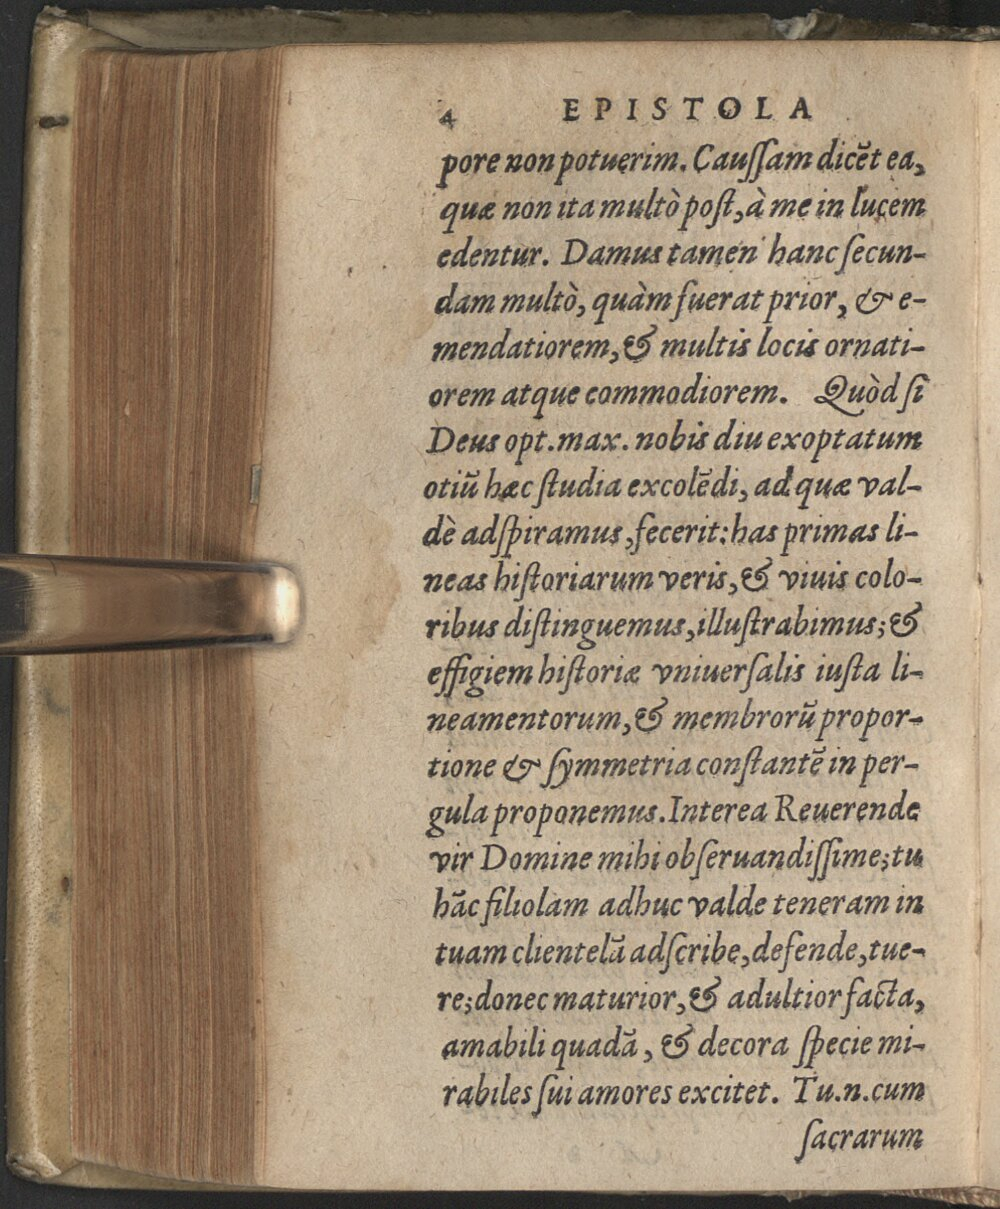 4 EPISTOLA
pore non potuerim. Cauſſam dicẽt ea,
quæ non ita multò poſt, à me in lucem
edentur. Damus tamen hanc ſecun-
dam multò, quàm fuerat prior, & e-
mendatiorem, & multis locis ornati-
orem atque commodiorem. Quòd ſi
Deus opt. max. nobis diu exoptatum
otiũ hæc ſtudia excolẽdi, ad quæ val-
dè adſpiramus, fecerit: has primas li-
neas hiſtoriarum veris, & viuis colo-
ribus diſtinguemus, illuſtrabimus; &
effigiem hiſtoriæ vniuerſalis iuſta li-
neamentorum, & membrorũ propor-
tione & ſymmetria conſtantẽ in per-
gula proponemus. Interea Reuerende
vir Domine mihi obſeruandiſſime; tu
hãc filiolam adhuc valde teneram in
tuam clientelã adſcribe, defende, tue-
re; donec maturior, & adultior facta,
amabili quadã, & decora ſpecie mi-
rabiles ſui amores excitet. Tu.n.cum
ſacrarum